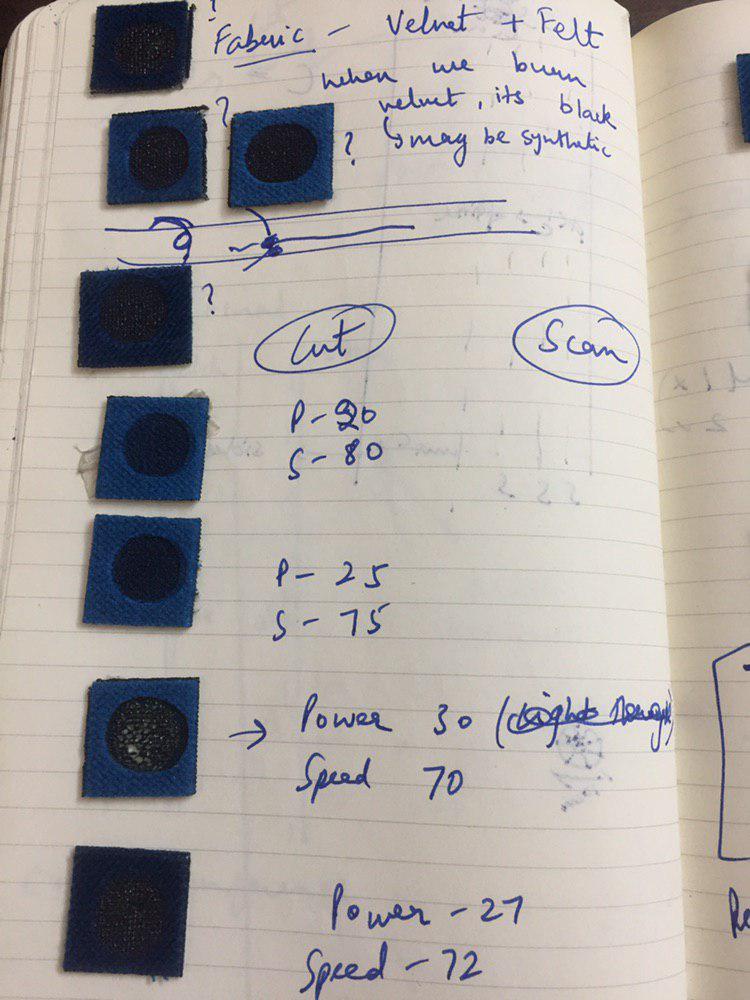 ?
Fabric - Velvet + Felt
when we burn
velvet, its black
↳ may be synthetic
?
?
?
Cut
Scan
P - 20
S - 80
P - 25
S - 75
→ Power 30
Speed 70
Power - 27
Speed - 72